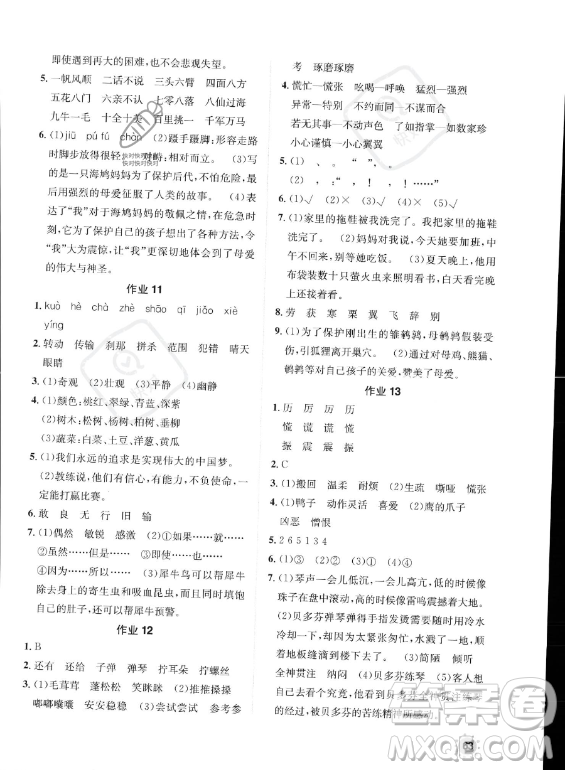 即使遇到再大的困难,也不会悲观失望。
5. 一帆风顺 二话不说 三头六臂 四面八方
五花八门 六亲不认 七零八落 八仙过海
九牛一毛 十全十美 百里挑一 千军万马
6. (1)jiū pú fú (2)蹑手蹑脚:形容走路
时脚步放得很轻 (3)
一只海鸠妈妈为了保护后代,不怕危险,最
后用屠夫的母爱征服了人类的故事。 (4)表
达了“我”对于海鸠妈妈的敬佩之情,在危急时
刻,它为了保护自己的孩子想出了各种方法,
令“我”大为震惊,让“我”更深切地体会到了母爱
的伟大与神圣。
作业 11
1. kuò hè chà zhé shāo qī jiǎo xiè
yíng
2. 转动 传输 刹那 拼杀 范围 犯错 晴天
眼睛
3. (1)奇观 (2)壮观 (3)平静 (4)幽静
4. (1)颜色:桃红、翠绿、青蓝、深紫
(2)树木:松树、杨树、柳树、柏树
(3)蔬菜:白菜、土豆、洋葱、黄瓜
5. (1)我们永远的追求是实现伟大的中国梦。
(2)教练说,他们有信心,有能力,因此,一定
能打赢比赛。
6. 敢 良 无 行 旧 输
7. (1)偶然 敏锐 感激 (2)①如果……就……
②虽然……但是…… ③不是……而是……
④因为……所以…… (3)犀牛鸟可以帮犀牛
驱赶身上的寄生虫和害虫,而且同时填饱自
己的肚子,还可以帮犀牛预警。
作业 12
1. B
2. 还有 还给 子弹 弹琴 拧耳朵 拧螺丝
3. (1)毛茸茸 蓬松松 笑眯眯 (2)推推操操
嘟嘟囔囔 安安稳稳 (3)尝试尝试 参考参
考 琢磨琢磨
4. 慌忙—慌张 吆喝—呼唤 猛烈—强烈
异常—特别 不约而同—不谋而合
若无其事—不动声色 了如指掌—如数家珍
小心谨慎—小心翼翼
5. (1), “ , ” 。
(2) , : “ , ! ”
6. (1)√ (2)× (3)× (4)× (5)√
7. (1)家里的拖鞋被我洗完了。 我把家里的拖鞋
洗完了。 (2)妈妈对我说,她今天单位加班,中
午不回家,让我别等她吃饭。 (3)夏天晚上,他用
布袋装数十只萤火虫来照明看书,白天更是
无时无刻不在努力研究。
8. 劳 获 寒 栗 翼 飞 辞 翩
9. (1)为了保护刚出生的雏鹌鹑,母鹌鹑勇敢出
击,引狐狸离开巢穴。 (2)通过对母鸡、熊猫、
鹌鹑对自己孩子的关爱,赞美了母爱。
作业 13
1. 历 厉 历 厉
慌 谎 慌 谎
振 震 震 震
2. C
3. (1)搬回 温柔 耐烦 (2)生疏 嘶哑 慌张
4. (1)鸭子 动作灵活 喜爱 (2)鹰的爪子
凶恶 憎恨
5. 2 6 5 1 3 4
6. (1)① (2)③ (3)② (4)④
7. (1)琴声一会儿低沉,一会儿高亢,低的时候像
珠子在盘中滚动,高的时候像雷鸣震撼着大地。
(2)①贝多芬弹琴弹得手指发烫需要放在水中
冷却 ②因为太紧张匆忙,水溅了一地,水滴顺
着地板缝滴到了楼下 (3)陶醉 倾听
全神贯注 纳闷 (4)